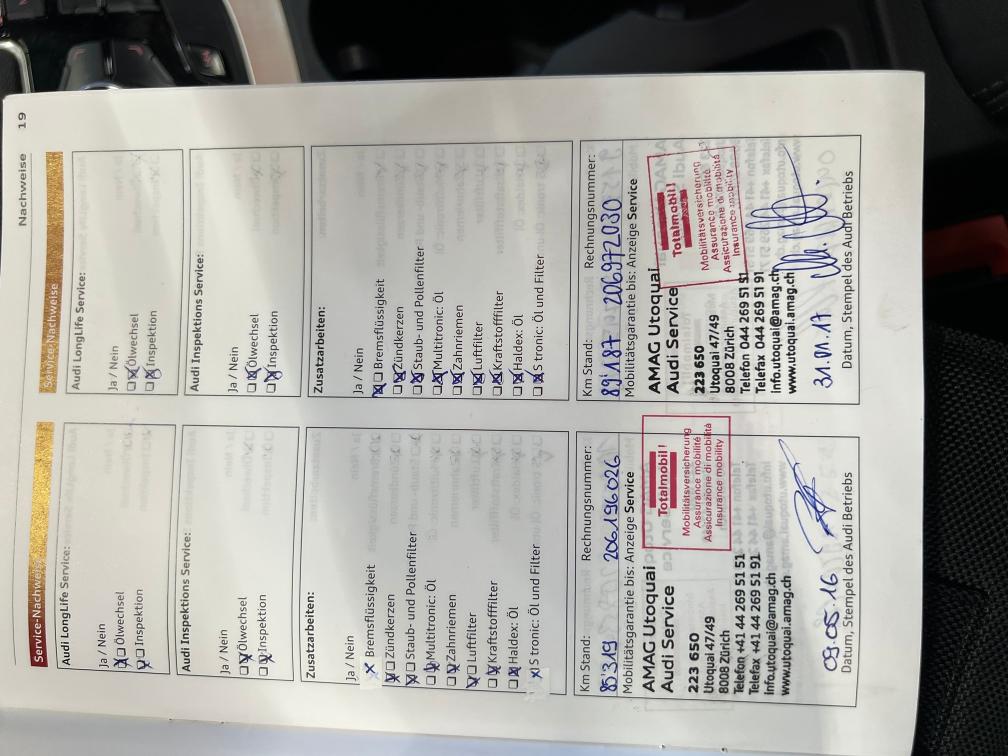 Nachweise 19
Service-Nachweise
Audi LongLife Service:
Ja / Nein
Ölwechsel
Inspektion
Audi Inspektions Service:
Ja / Nein
Ölwechsel
Inspektion
Zusatzarbeiten:
Ja / Nein
Bremsflüssigkeit
Zündkerzen
Staub- und Pollenfilter
Multitronic: Öl
Zahnriemen
Luftfilter
Kraftstofffilter
Haldex: Öl
S tronic: Öl und Filter
Km Stand: Rechnungsnummer:
85'319 206196026
Mobilitätsgarantie bis: Anzeige Service
AMAG Utoquai
Audi Service
223 650
Utoquai 47/49
8008 Zürich
Telefon +41 44 269 51 51
Telefax +41 44 269 51 91
Info.utoquai@amag.ch
www.utoquai.amag.ch
Totalmobil!
Mobilitätsversicherung
Assurance mobilité
Assicurazione di mobilità
Insurance mobility
09.05.16
Datum, Stempel des Audi Betriebs
Service-Nachweise
Audi LongLife Service:
Ja / Nein
Ölwechsel
Inspektion
Audi Inspektions Service:
Ja / Nein
Ölwechsel
Inspektion
Zusatzarbeiten:
Ja / Nein
Bremsflüssigkeit
Zündkerzen
Staub- und Pollenfilter
Multitronic: Öl
Zahnriemen
Luftfilter
Kraftstofffilter
Haldex: Öl
S tronic: Öl und Filter
Km Stand: Rechnungsnummer:
89'187 206972030
Mobilitätsgarantie bis: Anzeige Service
AMAG Utoquai
Audi Service
223 650
Utoquai 47/49
8008 Zürich
Telefon 044 269 51 51
Telefax 044 269 51 91
info.utoquai@amag.ch
www.utoquai.amag.ch
Totalmobil!
Mobilitätsversicherung
Assurance mobilité
Assicurazione di mobilità
Insurance mobility
31.01.17
Datum, Stempel des Audi Betriebs